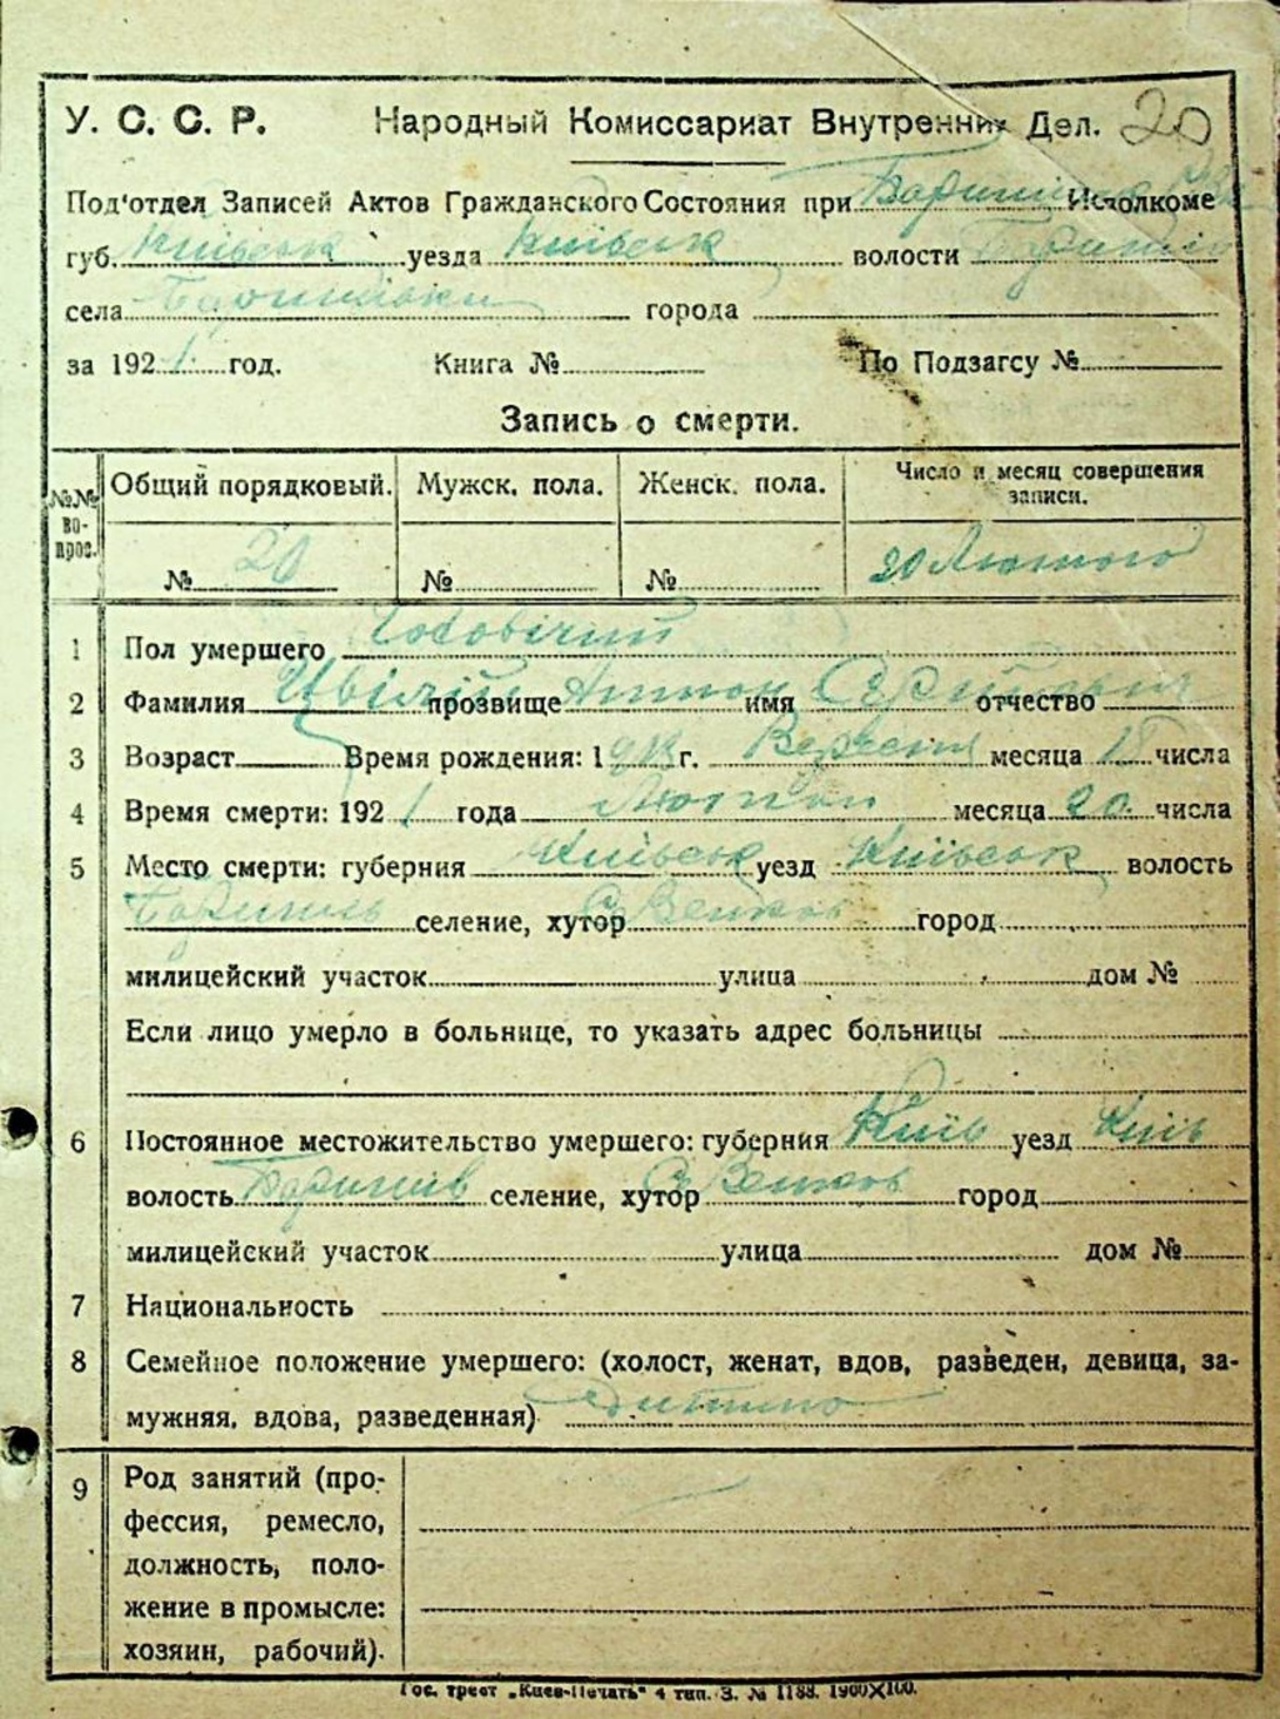 У. С. С. Р. Народный Комиссариат Внутренних Дел. 20
Под'отдел Записей Актов Гражданского Состояния при Исполкоме
губ. Київськ уезда Київськ волости
села города
за 1921 год. Книга № По Подзагсу №
Запись о смерти.
№№ вопрос. Общий порядковый. Мужск. пола. Женск. пола. Число и месяц совершения
записи.
№ 20 № № 20 Лютого
1 Пол умершего Чоловічий
2 Фамилия Цвілий прозвище Антон имя Сергійович отчество
3 Возраст Время рождения: 1 г. Вересня месяца числа
4 Время смерти: 1921 года месяца 20 числа
5 Место смерти: губерния Київськ уезд Київськ волость
Бориспіль селение, хутор город
милицейский участок улица дом №
Если лицо умерло в больнице, то указать адрес больницы
6 Постоянное местожительство умершего: губерния Київ уезд Київ
волость селение, хутор город
милицейский участок улица дом №
7 Национальность
8 Семейное положение умершего: (холост, женат, вдов, разведен, девица, за-
мужняя, вдова, разведенная) Дитина
9 Род занятий (про-
фессия, ремесло,
должность, поло-
жение в промысле:
хозяин, рабочий).
Гос. трест „Киев-Печать" 4 тип. З. № 1188. 1900X100.